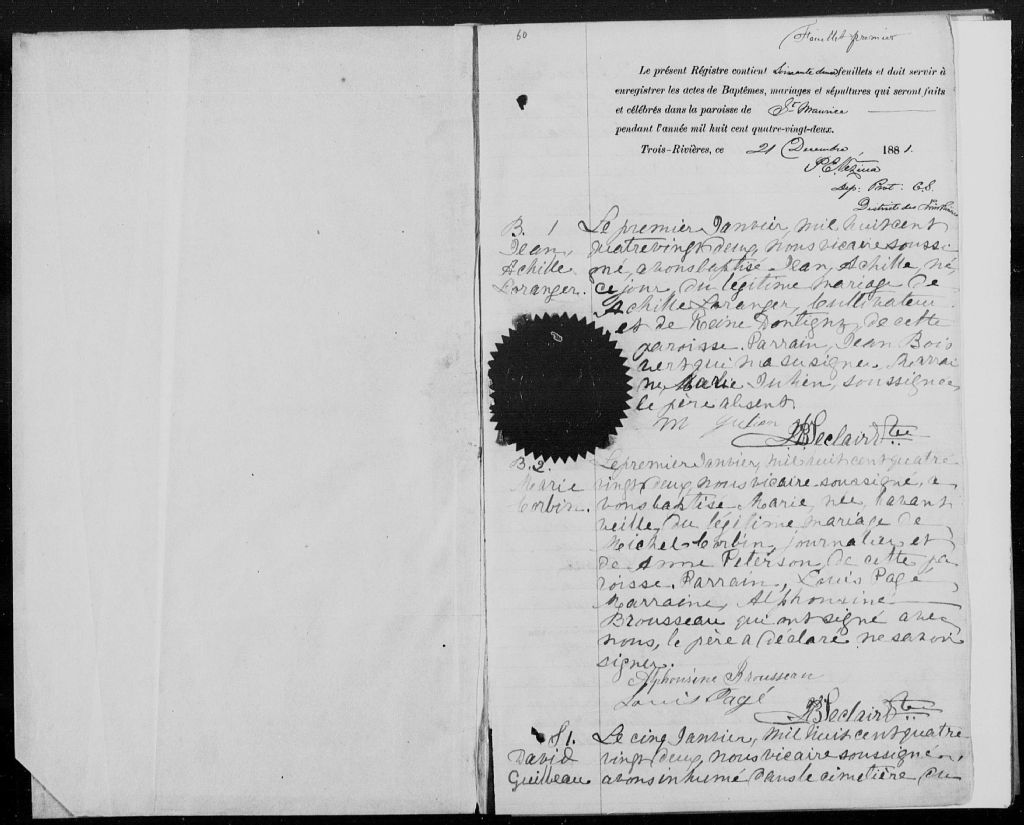 60
Feuillet premier
Le présent Régistre contient soixante deux feuillets et doit servir à
enregistrer les actes de Baptêmes, mariages et sépultures qui seront faits
et célébrés dans la paroisse de St Maurice
pendant l'année mil huit cent quatre-vingt-deux.
Trois-Rivières, ce 21 Decembre 1881.
Dep: Prot: C.S.
District des Trois Rivières
B. 1
Jean,
Achille
Loranger.
Le premier Janvier, mil huit cent
quatre vingt deux, nous vicaire soussi
né, avons baptisé Jean, Achille, né
ce jour, du légitime mariage de
Achille Loranger, Cultivateur
et de Reine Dontigny, de cette
paroisse. Parrain, Jean Bois
vert qui n'a su signer, Marrai
ne, Marie Julien, soussignée,
le père absent.
M Julien
Leclair Ptre
B. 2.
Marie
Corbin.
Le premier Janvier, mil huit cent quatre
vingt deux, nous vicaire soussigné, a
vons baptisé Marie, née, l'avant
veille, du légitime mariage de
Michel Corbin, journalier et
de Anne Peterson, de cette pa
roisse. Parrain, Louis Pagé
Marraine, Alphonsine
Brousseau qui ont signé avec
nous, le père a déclaré ne savoir
signer.
Alphonsine Brousseau
Louis Pagé
Leclair Ptre
S 1.
David
Guilbeau
Le cinq Janvier, mil huit cent quatre
vingt deux, nous vicaire soussigné,
avons inhumé dans le cimetière du